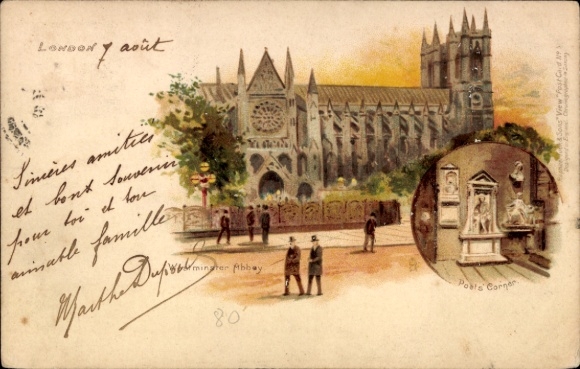 LONDON 7 août
Sincères amitiés
et bons souvenirs
pour toi et ton
aimable famille
Marthe Dupois
Westminster Abbey
Poets' Corner.
80